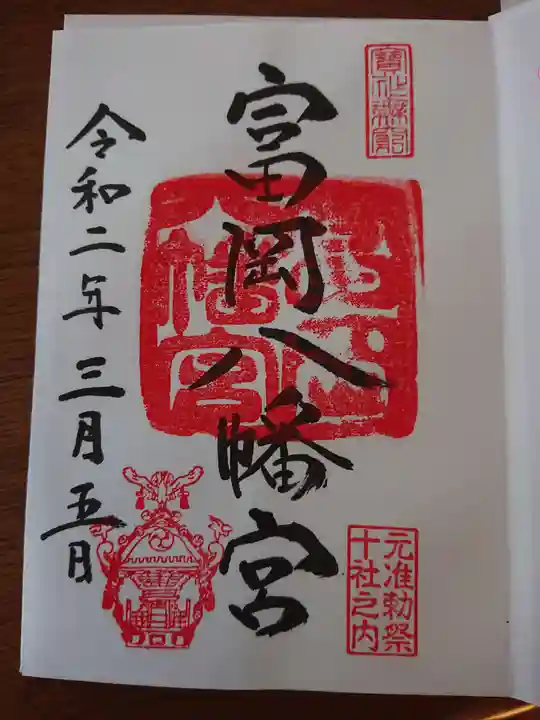 富岡八幡宮
元准勅祭
十社之内
令和二年三月五日